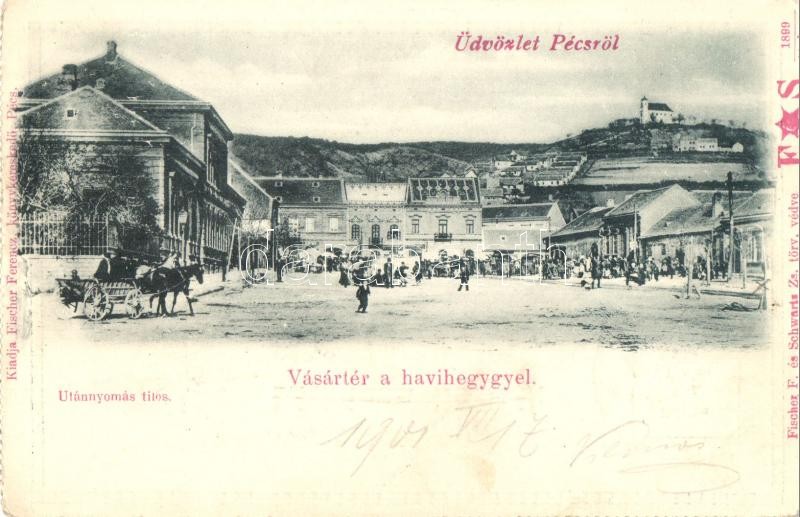 Üdvözlet Pécsről
1899
F★S
Fischer F. és Schwartz Zs. törv. védve
Kiadja Fischer Ferencz, Könyvkereskedő, Pécs.
darabanth.com
Vásártér a havihegygyel.
Utánnyomás tilos.
1901 VII 17